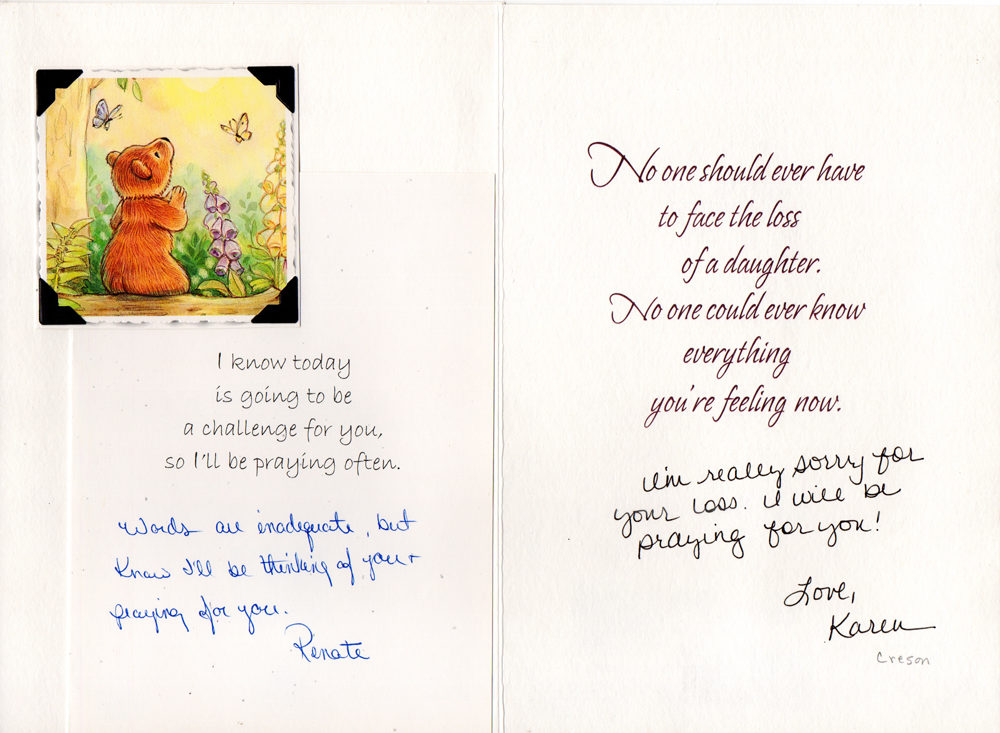 I know today
is going to be
a challenge for you,
so I'll be praying often.
Words are inadequate, but
Know I'll be thinking of you +
praying for you.
Renate
No one should ever have
to face the loss
of a daughter.
No one could ever know
everything
you're feeling now.
I'm really sorry for
your loss. I will be
praying for you!
Love,
Karen
Creson